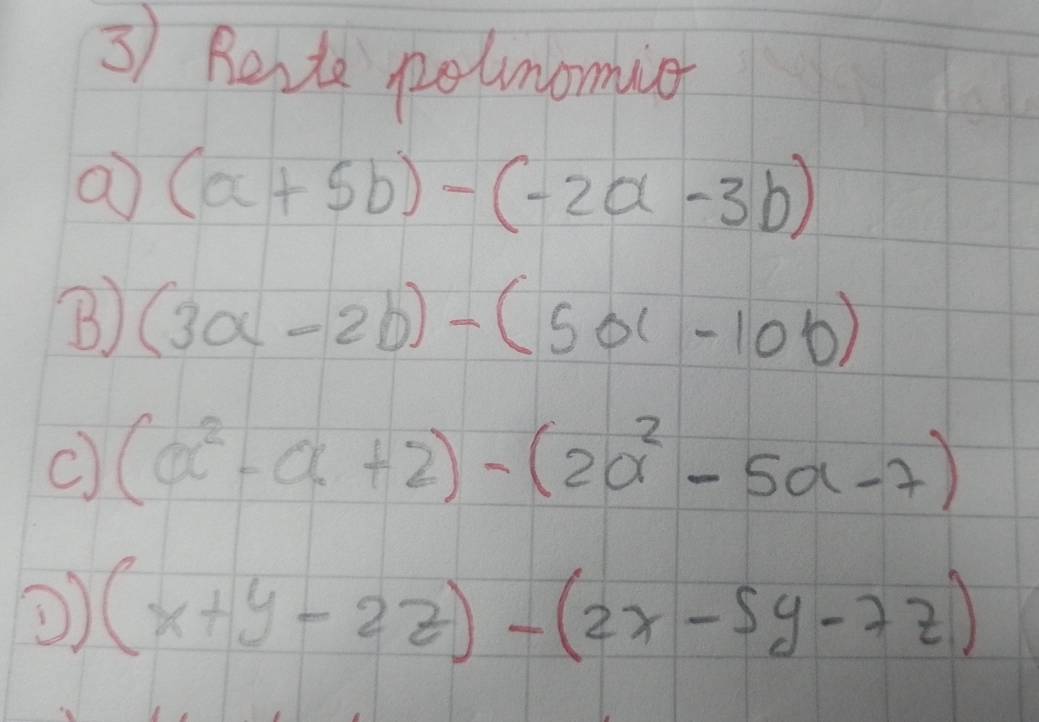 3) Reste polinomio
a) (a + 5b) - (-2a - 3b)
B) (3a - 2b) - (5a - 10b)
c) (a² - a + 2) - (2a² - 5a - 7)
D) (x + y - 2z) - (2x - 5y - 7z)